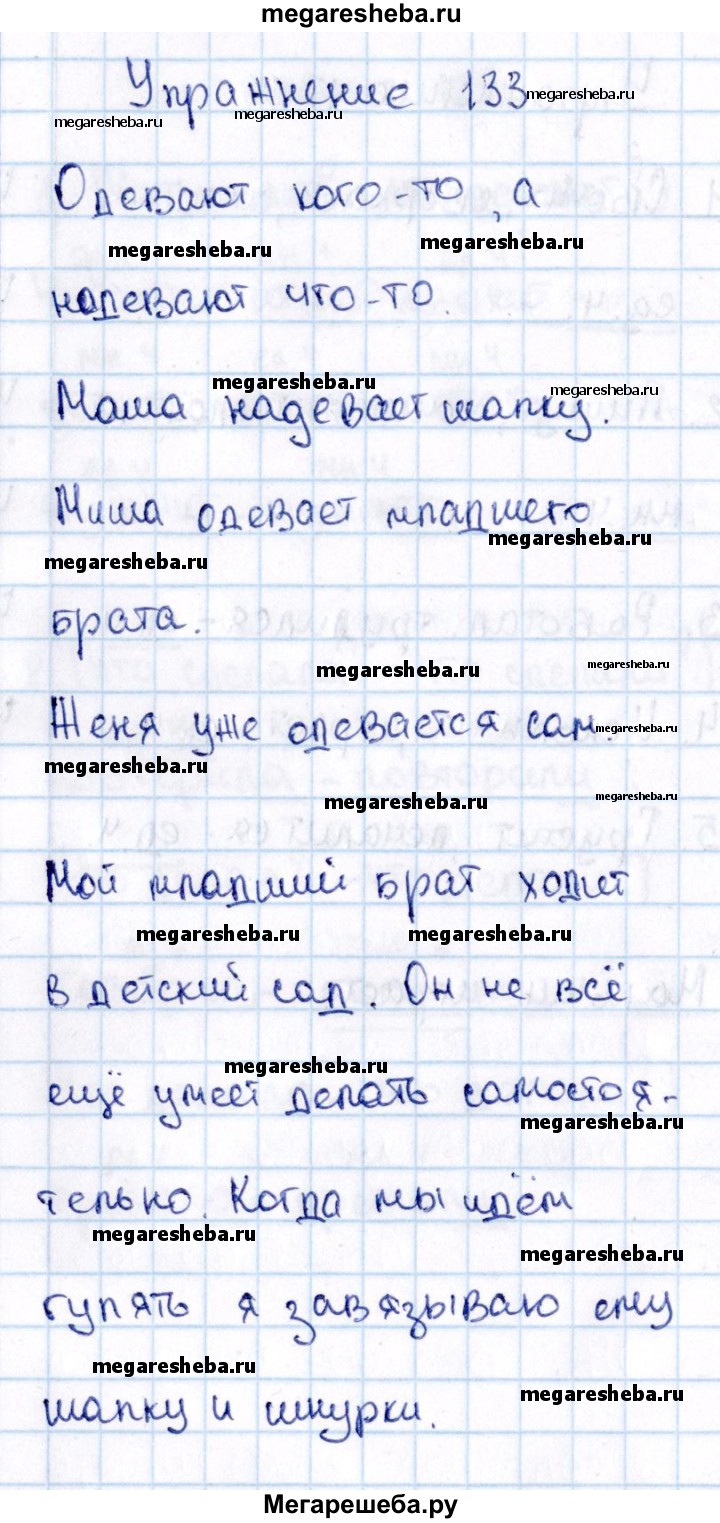 megaresheba.ru
Упражнение 133 megaresheba.ru
megaresheba.ru megaresheba.ru
Одевают кого-то, а
megaresheba.ru megaresheba.ru
надевают что-то.
megaresheba.ru megaresheba.ru
Маша надевает шапку.
Миша одевает младшего
megaresheba.ru
megaresheba.ru
брата.
megaresheba.ru megaresheba.ru
Женя уже одевается сам. megaresheba.ru
megaresheba.ru
megaresheba.ru megaresheba.ru
Мой младший брат ходит
megaresheba.ru megaresheba.ru
в детский сад. Он не всё
megaresheba.ru
ещё умеет делать самостоя-
megaresheba.ru
тельно. Когда мы идём
megaresheba.ru
megaresheba.ru
гулять я завязываю ему
megaresheba.ru
megaresheba.ru
шапку и шнурки.
Мегарешеба.ру